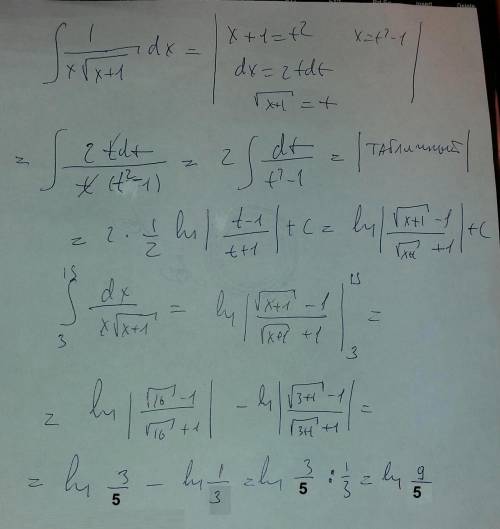 ∫ 1/(x√(x+1)) dx = | x+1=t² x=t²-1
dx=2tdt
√(x+1) = t |
= ∫ 2tdt/(t(t²-1)) = 2∫ dt/(t²-1) = |ТАБЛИЧНЫЙ|
= 2 · 1/2 ln|(t-1)/(t+1)| + C = ln|(√(x+1) -1)/(√(x+1) +1)| + C
∫₃¹⁵ dx/(x√(x+1)) = ln|(√(x+1) -1)/(√(x+1) +1)| |₃¹⁵ =
= ln|(√16 -1)/(√16 +1)| - ln|(√(3+1) -1)/(√(3+1) +1)| =
= ln 3/5 - ln 1/3 = ln 3/5 : 1/3 = ln 9/5